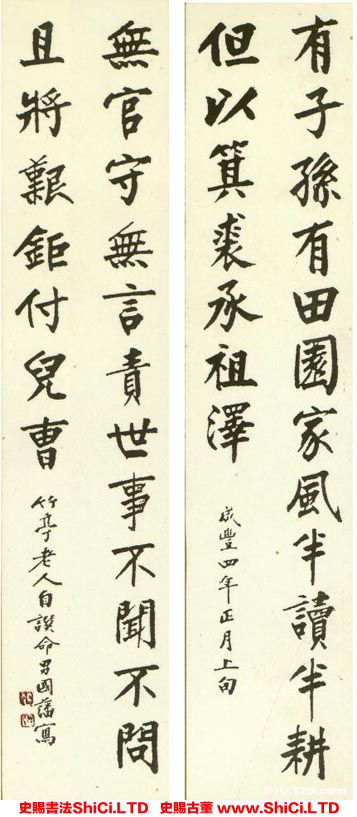 有子孫有田園家風半讀半耕
但以箕裘承祖澤
咸豐四年正月上旬
無官守無言責世事不聞不問
且將艱鉅付兒曹
竹亭老人自譔命男國藩寫
史賜書法ShiCi.LTD 史賜古董 www.ShiCi.LTD